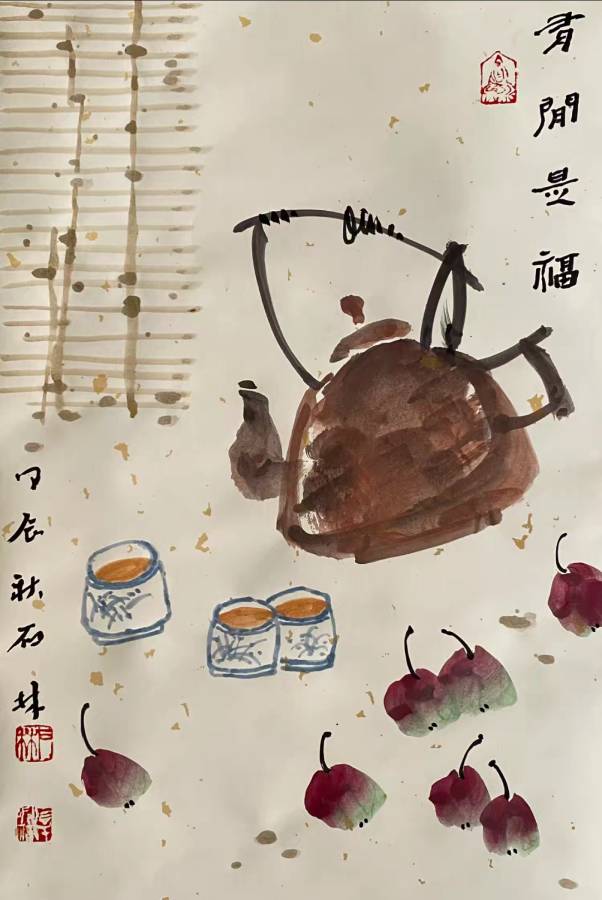 青閒是福
甲辰秋石林